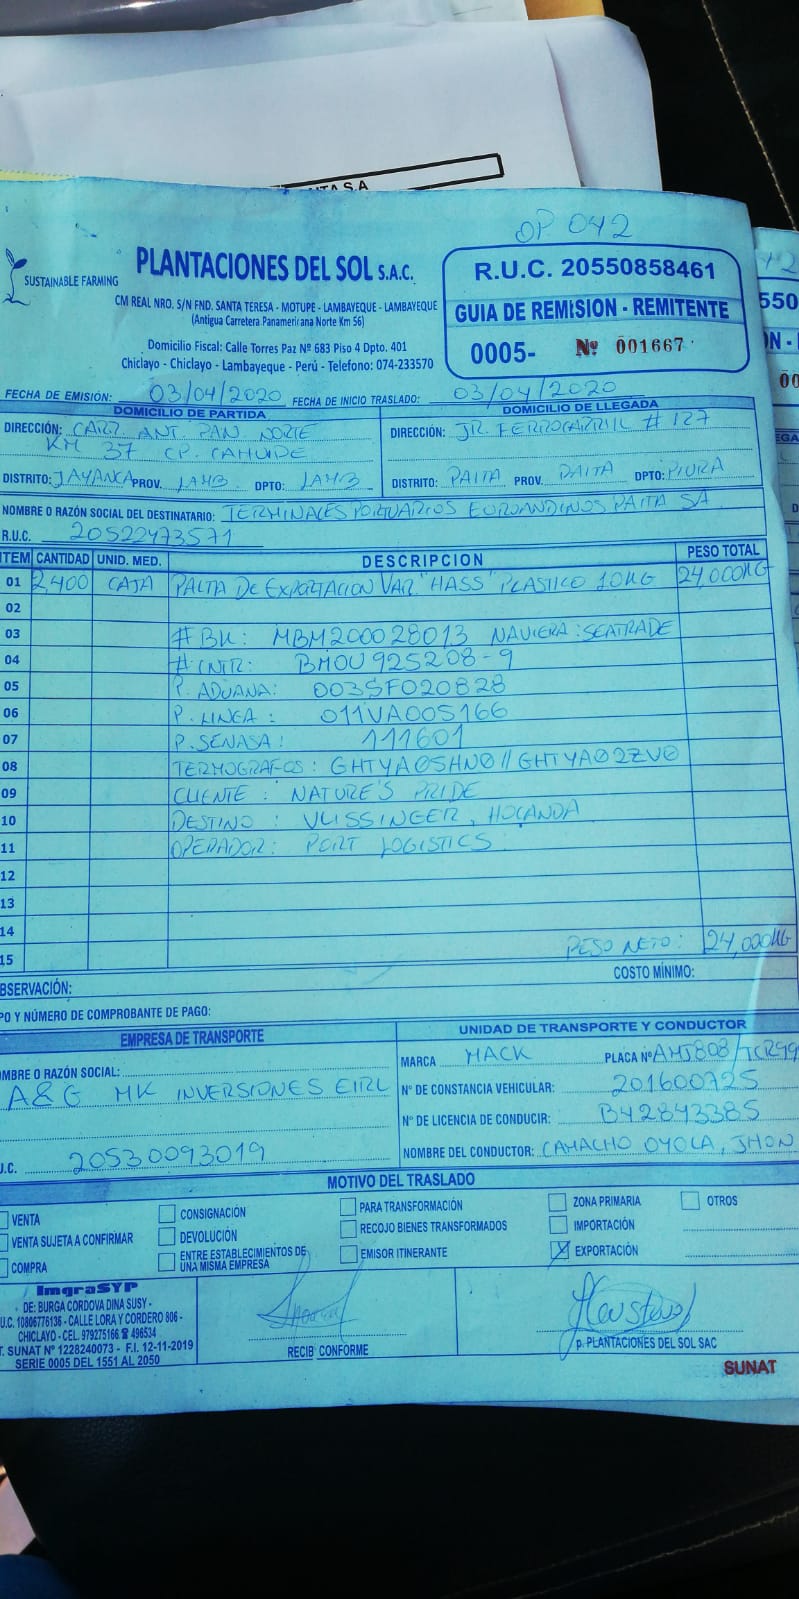 OP 042
PLANTACIONES DEL SOL S.A.C.
SUSTAINABLE FARMING
CM REAL NRO. S/N FND. SANTA TERESA - MOTUPE - LAMBAYEQUE - LAMBAYEQUE
(Antigua Carretera Panamericana Norte Km 56)
Domicilio Fiscal: Calle Torres Paz Nº 683 Piso 4 Dpto. 401
Chiclayo - Chiclayo - Lambayeque - Perú - Telefono: 074-233570
R.U.C. 20550858461
GUIA DE REMISION - REMITENTE
0005- Nº 001667
FECHA DE EMISIÓN: 03/04/2020 FECHA DE INICIO TRASLADO: 03/04/2020
DOMICILIO DE PARTIDA
DIRECCIÓN: CARR. ANT. PAN. NORTE
KM 37 CP. CAHUIDE
DISTRITO: JAYANCA PROV. LAMB. DPTO: LAMB
DOMICILIO DE LLEGADA
DIRECCIÓN: JR. FERROCARRIL # 127
DISTRITO: PAITA PROV. PAITA DPTO: PIURA
NOMBRE O RAZÓN SOCIAL DEL DESTINATARIO: TERMINALES PORTUARIOS EUROANDINOS PAITA SA
R.U.C. 20522473571
ITEM CANTIDAD UNID. MED. DESCRIPCION PESO TOTAL
01 2,400 CAJA PALTA DE EXPORTACION VAR. "HASS" PLASTICO 10KG 24,000KG
02
03 # BK: MBM200028013 NAVIERA: SEATRADE
04 # CNTR: BMOU 925208-9
05 P. ADUANA: 003SF020828
06 P. LINEA: 011VA005166
07 P. SENASA: 111601
08 TERMOGRAFOS: GHTYA05HN0 // GHTYA02ZV0
09 CLIENTE: NATURE'S PRIDE
10 DESTINO: VLISSINGER, HOLANDA
11 OPERADOR: PORT LOGISTICS
12
13
14
15 PESO NETO: 24,000KG
BSERVACIÓN: COSTO MÍNIMO:
PO Y NÚMERO DE COMPROBANTE DE PAGO:
EMPRESA DE TRANSPORTE
OMBRE O RAZÓN SOCIAL:
A&G MK INVERSIONES EIRL
U.C. 20530093019
UNIDAD DE TRANSPORTE Y CONDUCTOR
MARCA MACK PLACA Nº AMJ808/TCR99
Nº DE CONSTANCIA VEHICULAR: 201600725
Nº DE LICENCIA DE CONDUCIR: B42843385
NOMBRE DEL CONDUCTOR: CAMACHO OYOLA, JHON
MOTIVO DEL TRASLADO
VENTA CONSIGNACIÓN PARA TRANSFORMACIÓN ZONA PRIMARIA OTROS
VENTA SUJETA A CONFIRMAR DEVOLUCIÓN RECOJO BIENES TRANSFORMADOS IMPORTACIÓN
COMPRA ENTRE ESTABLECIMIENTOS DE UNA MISMA EMPRESA EMISOR ITINERANTE X EXPORTACIÓN
ImgraSYP
DE: BURGA CORDOVA DINA SUSY -
U.C. 10806776136 - CALLE LORA Y CORDERO 806 -
CHICLAYO - CEL. 979275166 ☎ 496534
T. SUNAT Nº 1228240073 - F.I. 12-11-2019
SERIE 0005 DEL 1551 AL 2050
RECIBÍ CONFORME
p. PLANTACIONES DEL SOL SAC
SUNAT